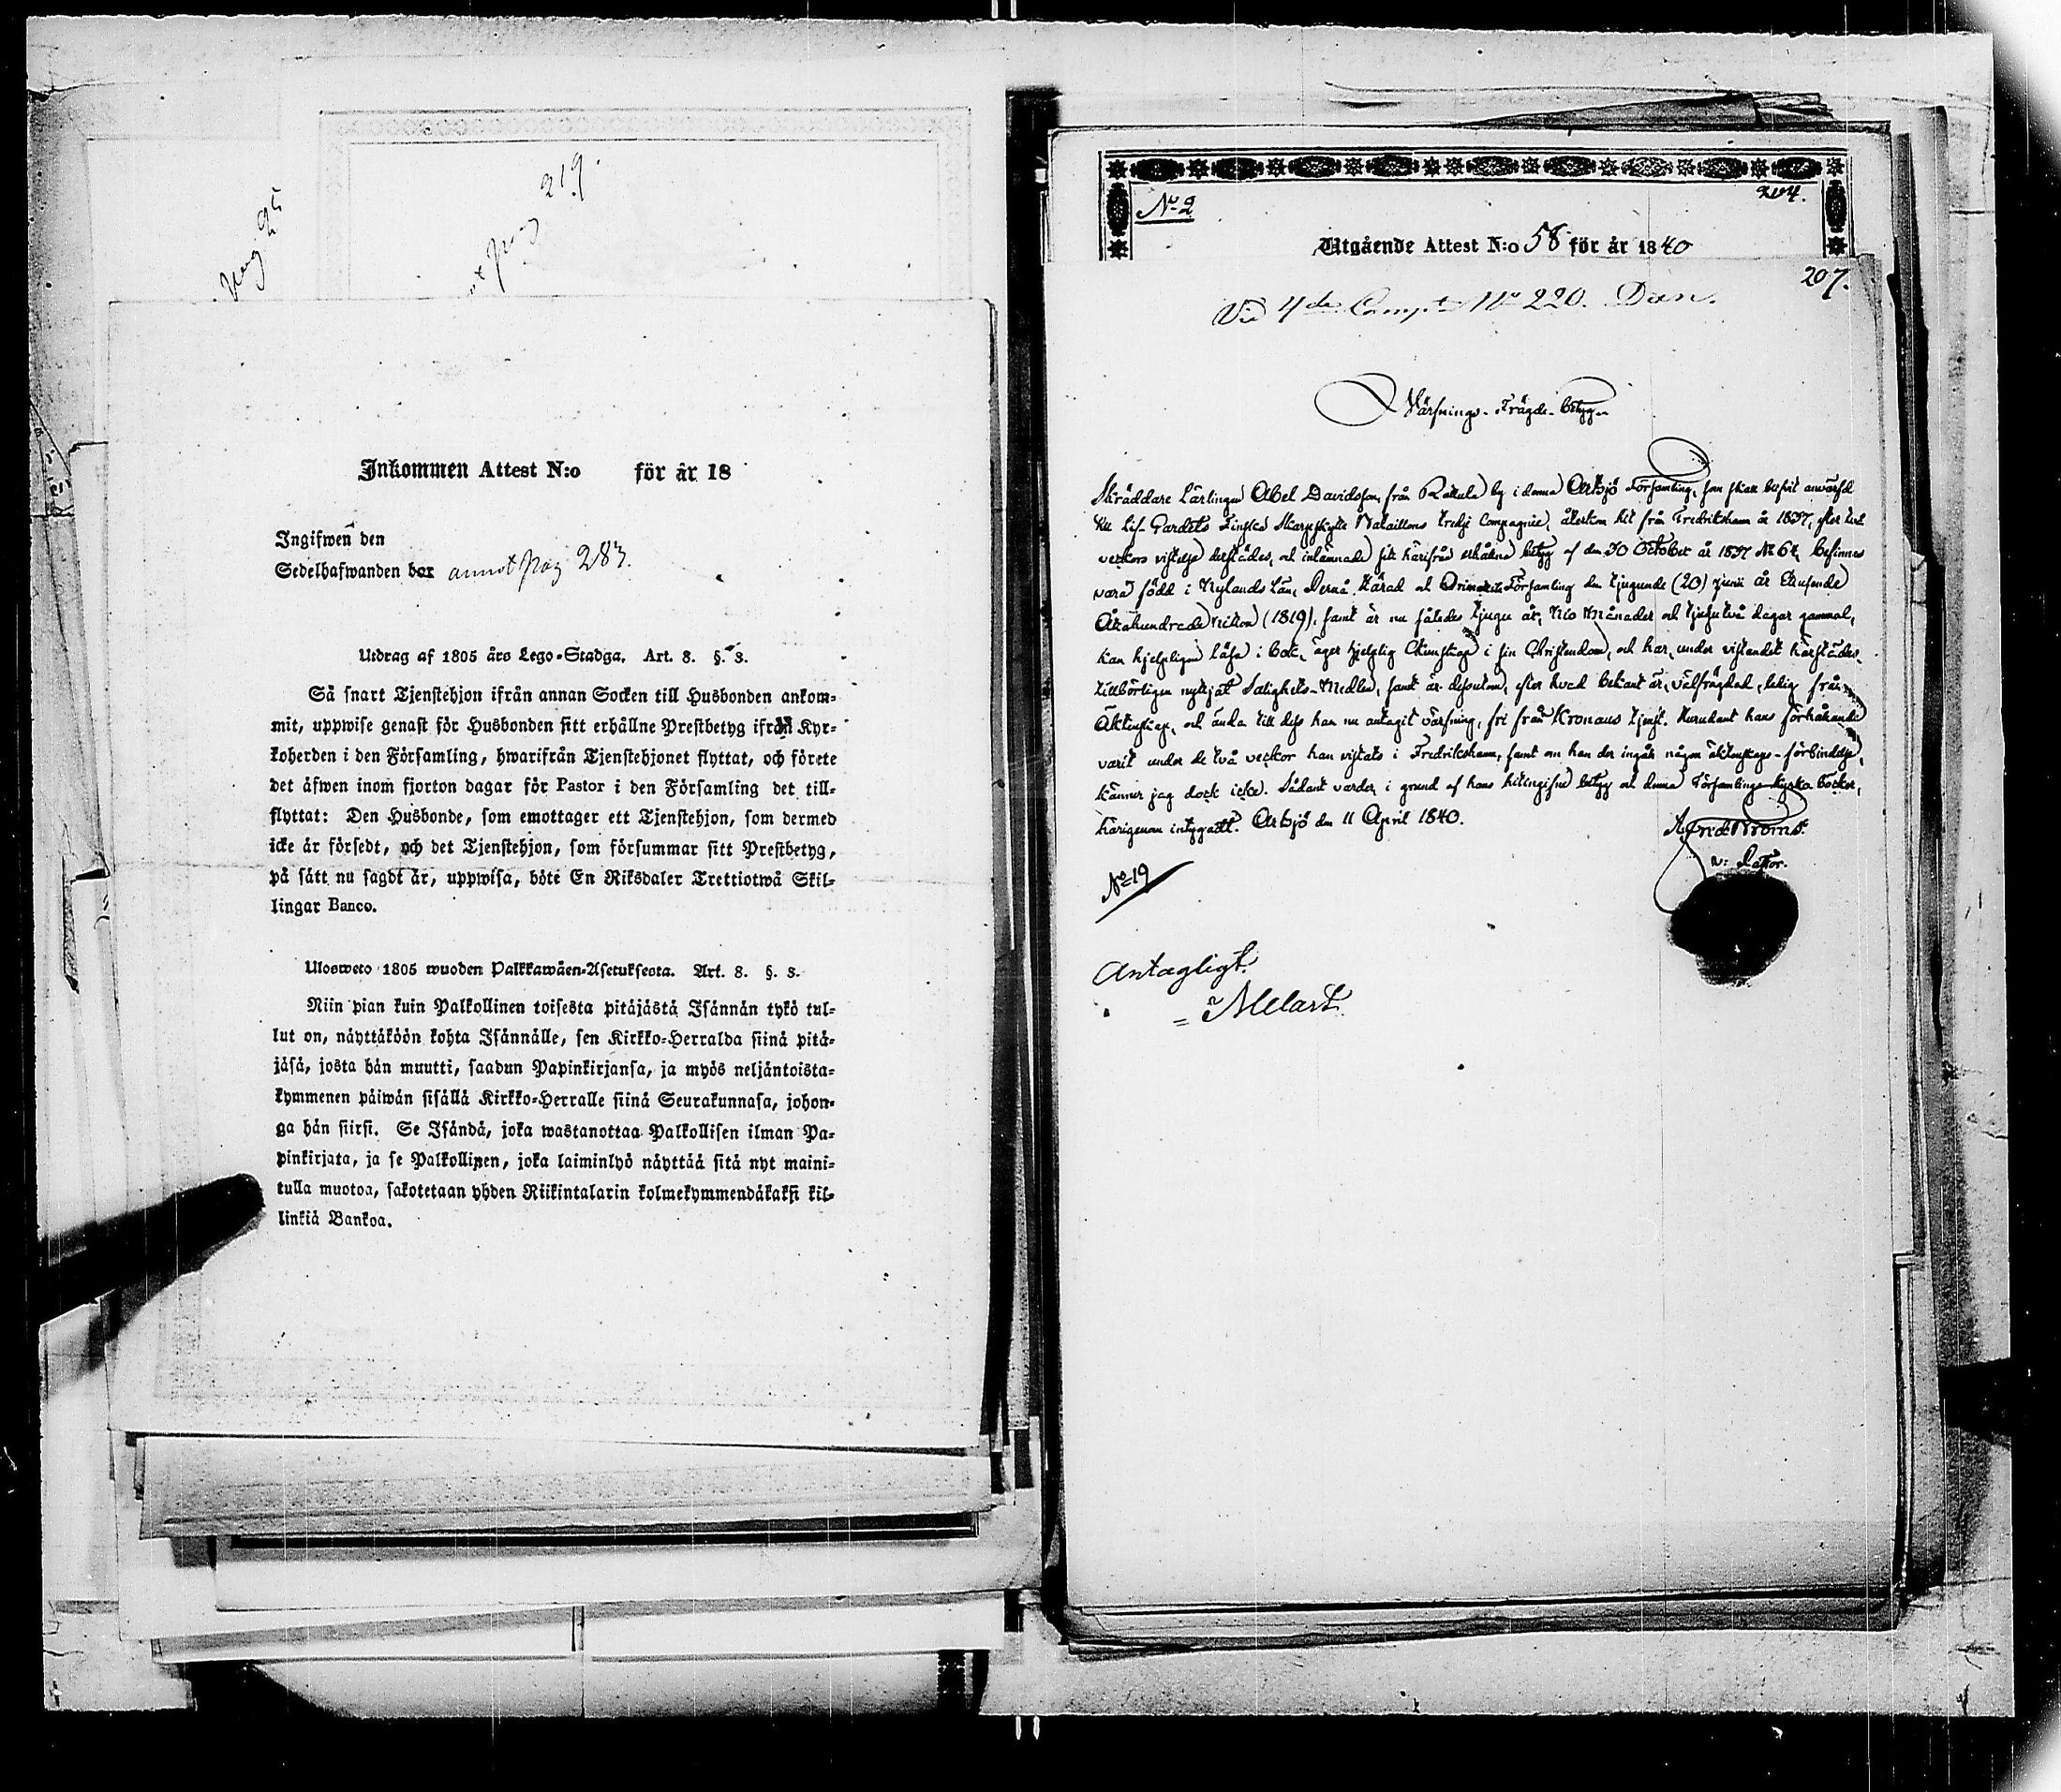 219.
Inkommen Attest N:o för år 18
Ingifwen den
Sedelhafwanden bor annot pag 283.
Utdrag af 1805 års Lego-Stadga. Art. 8. §. 3.
Så snart Tjenstehjon ifrån annan Socken till Husbonden ankom-
mit, uppwise genast för Husbonden sitt erhållne Prestbetyg ifrån Kyr-
koherden i den Församling, hwarifrån Tjenstehjonet flyttat, och förete
det äfwen inom fjorton dagar för Pastor i den Församling det till-
flyttat: Den Husbonde, som emottager ett Tjenstehjon, som dermed
icke är försedt, och det Tjenstehjon, som försummar sitt Prestbetyg,
på sätt nu sagdt är, uppwisa, böte En Riksdaler Trettiotwå Skil-
lingar Banco.
Ulosweto 1805 wuoden Palkkawäen-Asetuksesta. Art. 8. §. 3.
Niin pian kuin Palkollinen toisesta pitäjästä Isännän tykö tul-
lut on, näyttäköön kohta Isännälle, sen Kirkko-Herralda siinä pitä-
jäsä, josta hän muutti, saadun Papinkirjansa, ja myös neljäntoista-
kymmenen päiwän sisällä Kirkko-Herralle siinä Seurakunnasa, johon-
ga hän siirsi. Se Isändä, joka wastanottaa Palkollisen ilman Pa-
pinkirjata, ja se Palkollinen, joka laiminlyö näyttää sitä nyt maini-
tulla muotoa, sakotetaan yhden Riikintalarin kolmekymmendäkaksi kil-
linkiä Bankoa.
204.
No 2
Utgående Attest N:o 58 för år 1840
207.
Vid 4de Comp. No 220. Dän.
Värfnings-Frägde-betyg
Skräddare Lärlingen Abel Davidsson, från Rakula by i denna Artsjö Församling, som skall blifvit anvärfd
till Lif-Gardets Finska Skarpskytte Bataillons tredje Compagnie, återkom hit från Fredrikshamn år 1837, efter två
veckors vistelse derstädes, och inlämnade sitt härifrån erhållna betyg af den 30 October år 1837 No 64, befinnes
vara född i Nylands Län, Pernå Härad och Orimattila Församling den tjugunde (20) Junii år Ettusende
Åttahundrade nitton (1819), samt är nu således tjugu år, nio Månader och tjugutvå dagar gammal,
kan hjelpligen läsa i bok, äger hjelplig Kunskap i sin Christendom, och har, under vistandet härstädes,
tillbörligen nyttjat Salighets-Medlen, samt är dessutom, efter hvad bekant är, välfrägdad, ledig från
Äktenskap, och ända till dess han nu antagit värfning, fri från Kronans tjenst. Hurudant hans förhållande
varit under de två veckor han vistats i Fredrikshamn, samt om han der ingått någon äktenskaps-förbindelse,
känner jag dock icke. Sådant varder, i grund af hans hitingifne betyg och denna Församlings Kyrko-böcker,
härigenom intygadt. Artsjö den 11 April 1840.
v: Pastor.
No 19
Antagligt.
Melart